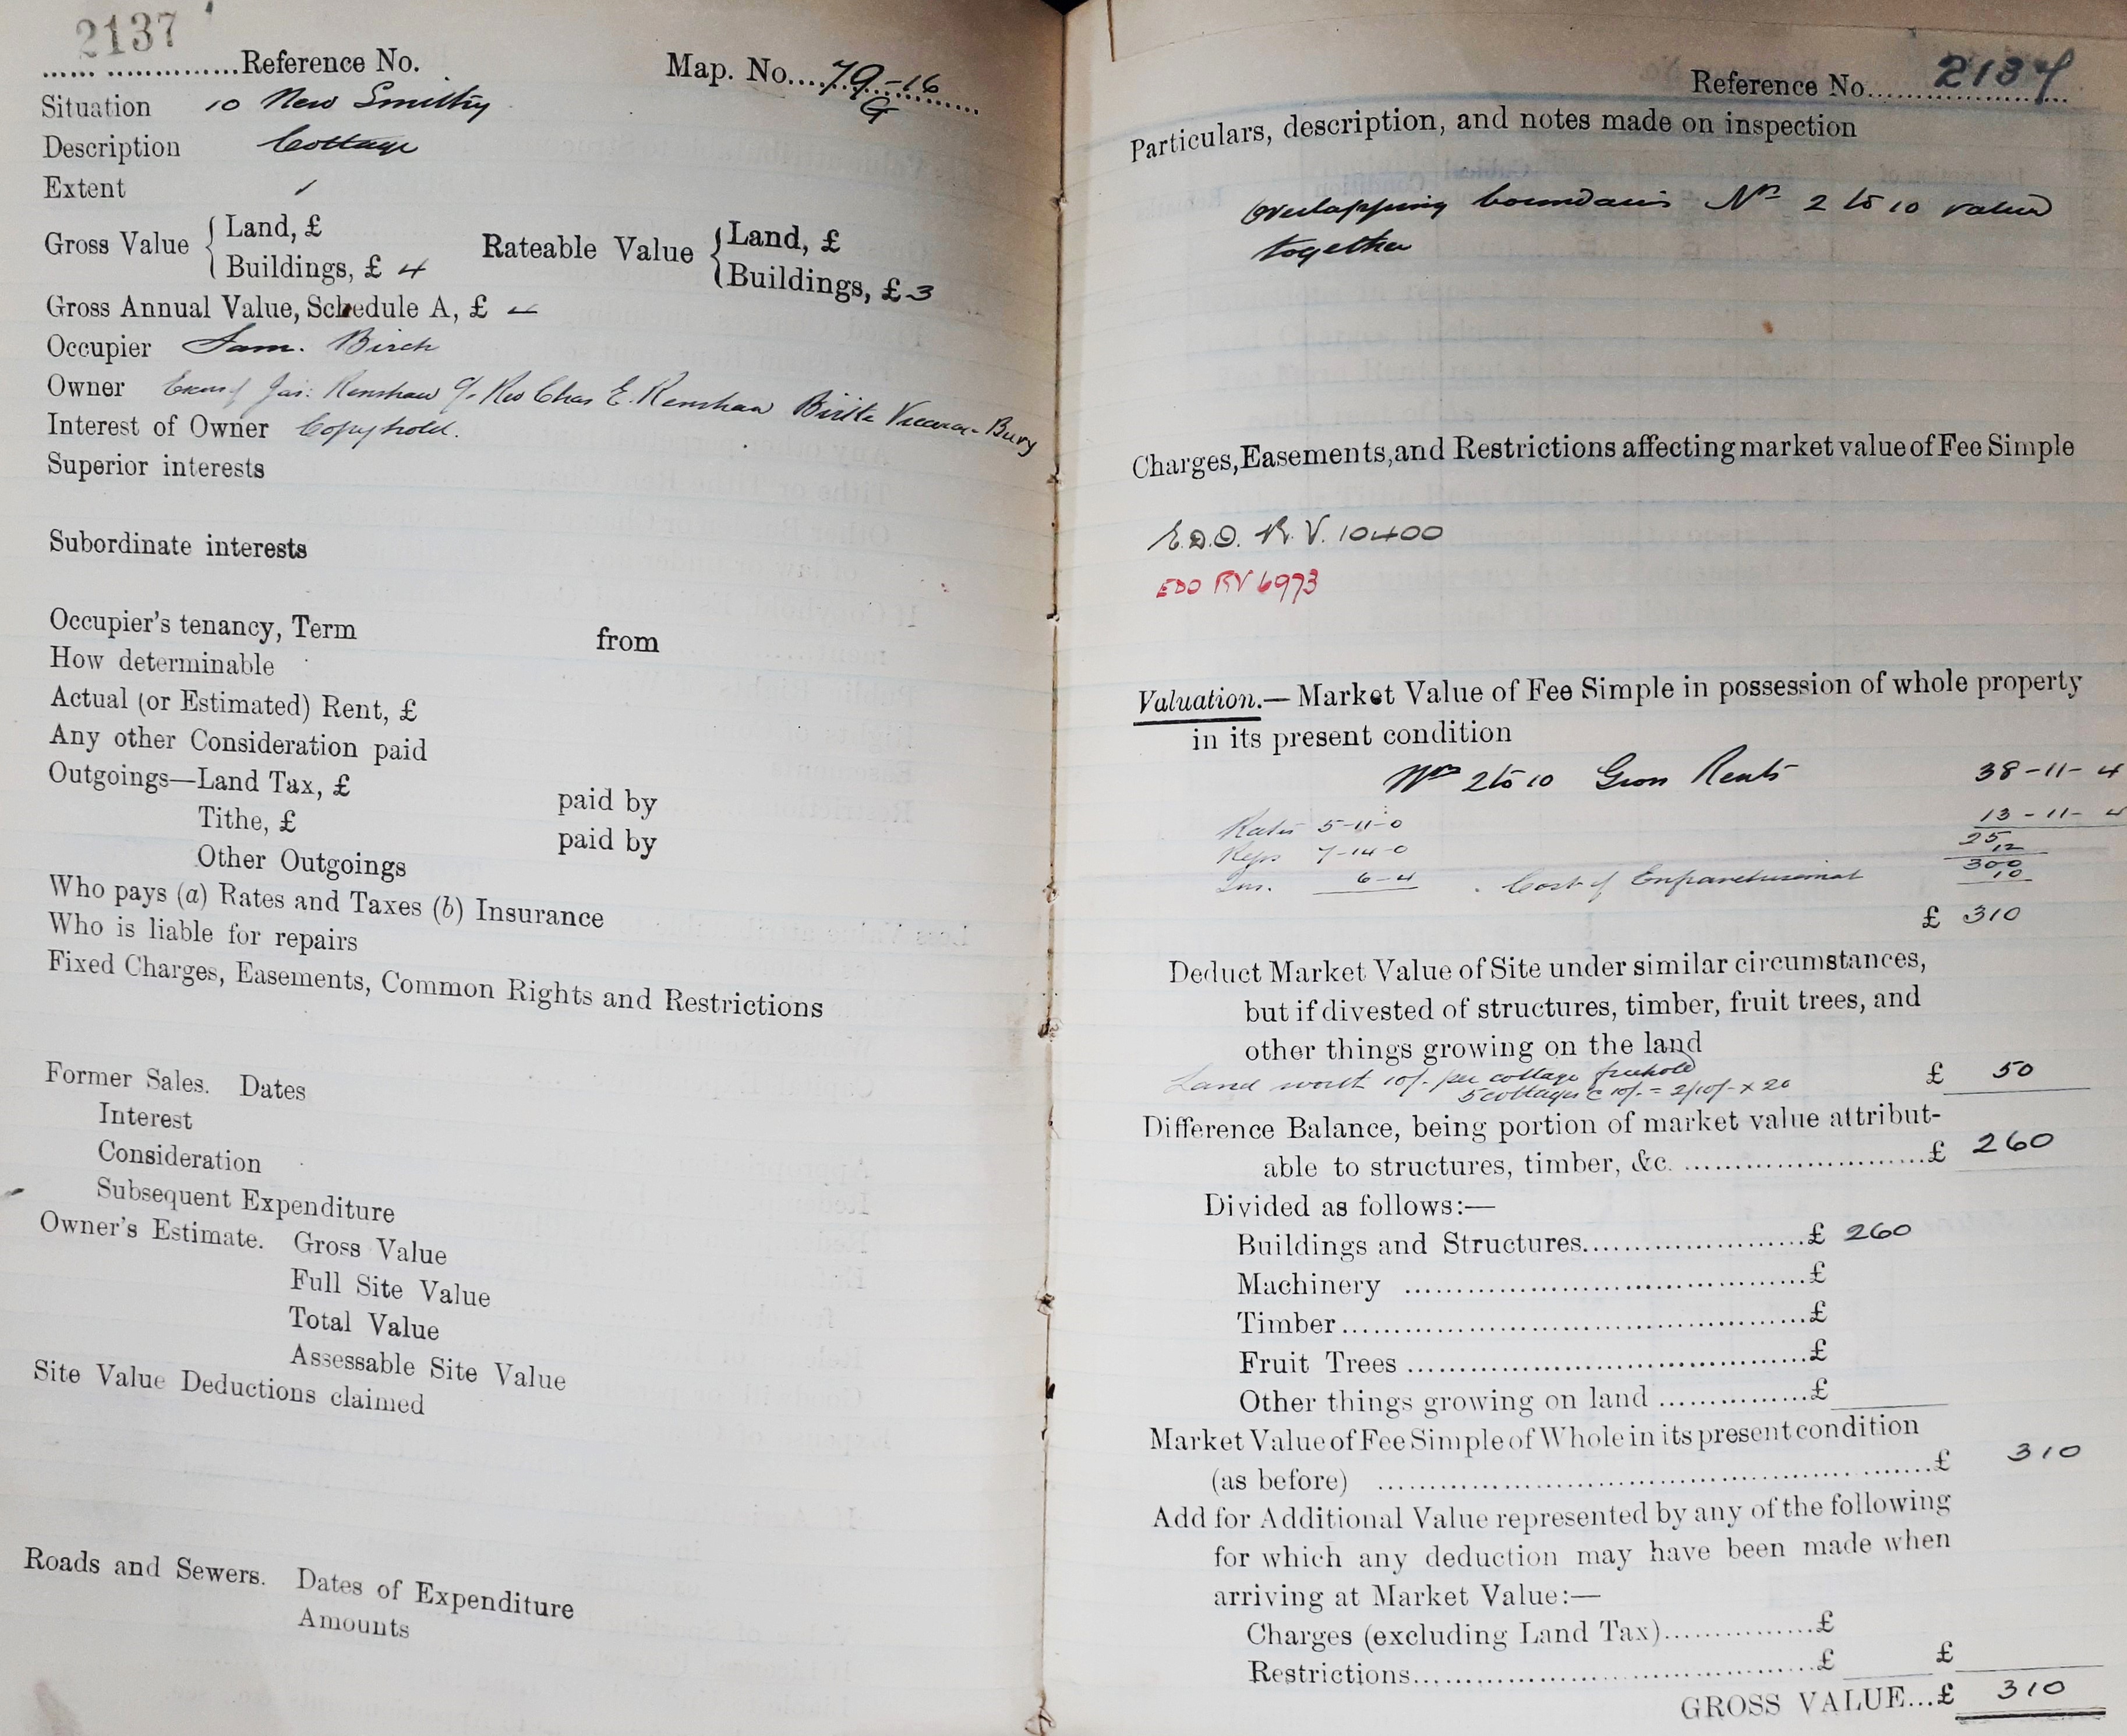 2137
Reference No. Map. No. 79-16
G
Situation 10 New Smithy
Description Cottage
Extent /
Gross Value { Land, £
Buildings, £ 4
Rateable Value { Land, £
Buildings, £ 3
Gross Annual Value, Schedule A, £ 4
Occupier Sam. Birch
Owner Exors of Jas: Renshaw c/o Rev Chas E. Renshaw Bury
Interest of Owner Copyhold.
Superior interests
Subordinate interests
Occupier's tenancy, Term from
How determinable
Actual (or Estimated) Rent, £
Any other Consideration paid
Outgoings—Land Tax, £ paid by
Tithe, £ paid by
Other Outgoings
Who pays (a) Rates and Taxes (b) Insurance
Who is liable for repairs
Fixed Charges, Easements, Common Rights and Restrictions
Former Sales. Dates
Interest
Consideration
Subsequent Expenditure
Owner's Estimate. Gross Value
Full Site Value
Total Value
Assessable Site Value
Site Value Deductions claimed
Roads and Sewers. Dates of Expenditure
Amounts
Reference No. 2137
Particulars, description, and notes made on inspection
Overlapping boundaries Nos 2 to 10 valued
together
Charges, Easements, and Restrictions affecting market value of Fee Simple
E.D.O. R.V. 10400
EDO RV 6973
Valuation.— Market Value of Fee Simple in possession of whole property
in its present condition
Nos 2 to 10 Gross Rents 38-11-4
Rates 5-11-0 13-11-4
Reps 7-14-0 25
12
Ins. 6-4 300
Cost of Enfranchisement 10
£ 310
Deduct Market Value of Site under similar circumstances,
but if divested of structures, timber, fruit trees, and
other things growing on the land
Land worth 10/- per cottage freehold £ 50
5 cottages @ 10/- = 2/10/- x 20
Difference Balance, being portion of market value attribut-
able to structures, timber, &c. £ 260
Divided as follows:—
Buildings and Structures £ 260
Machinery £
Timber £
Fruit Trees £
Other things growing on land £
Market Value of Fee Simple of Whole in its present condition
(as before) £ 310
Add for Additional Value represented by any of the following
for which any deduction may have been made when
arriving at Market Value:—
Charges (excluding Land Tax) £
Restrictions £ £
GROSS VALUE...£ 310